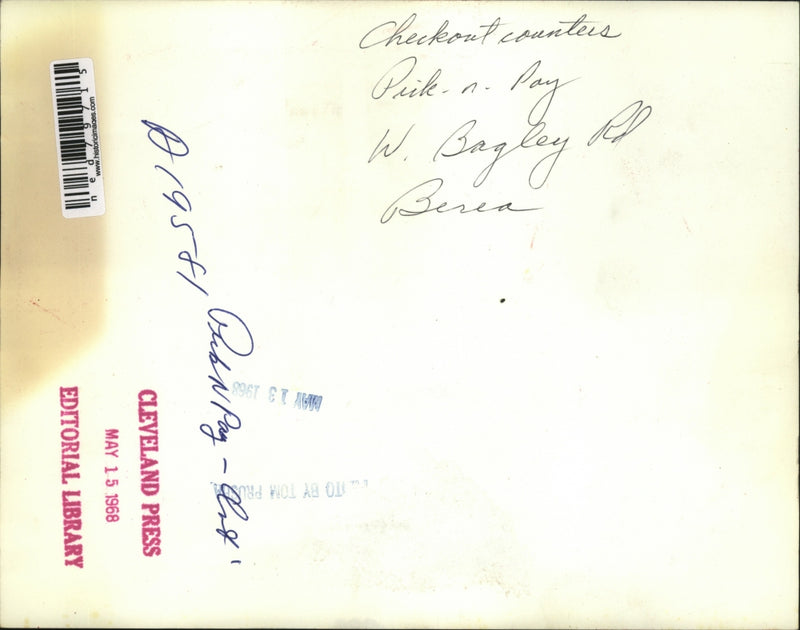 Checkout counters
Pick-n-Pay
W. Bagley Rd
Berea
www.historicimages.com
ned79715
Pick N Pay -
MAY 13 1968
PHOTO BY TOM PRUSHA
CLEVELAND PRESS
MAY 15 1968
EDITORIAL LIBRARY